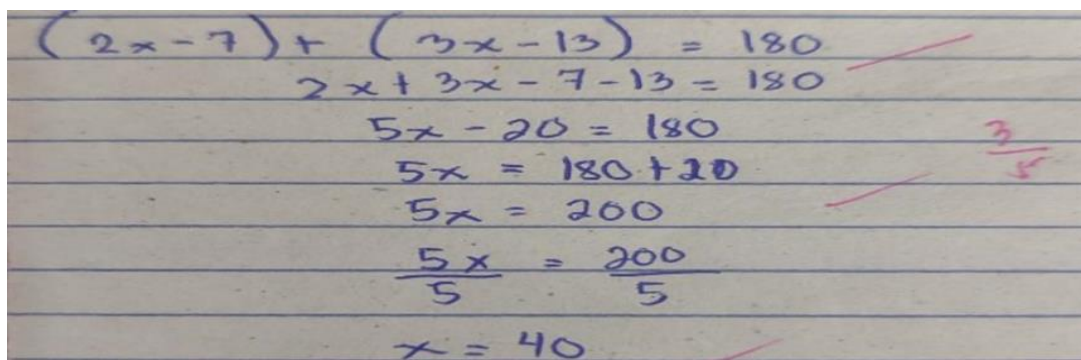 (2x-7)+ (3x-13) = 180
2x+3x-7-13= 180
5x-20= 180
3/5
5x = 180+20
5x = 200
5x/5 = 200/5
x = 40